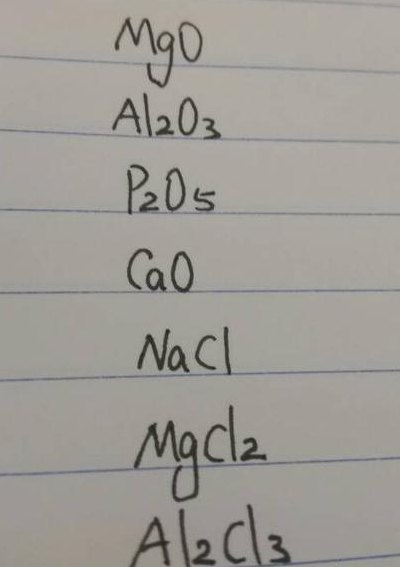 MgO
Al2O3
P2O5
CaO
NaCl
MgCl2
Al2Cl3